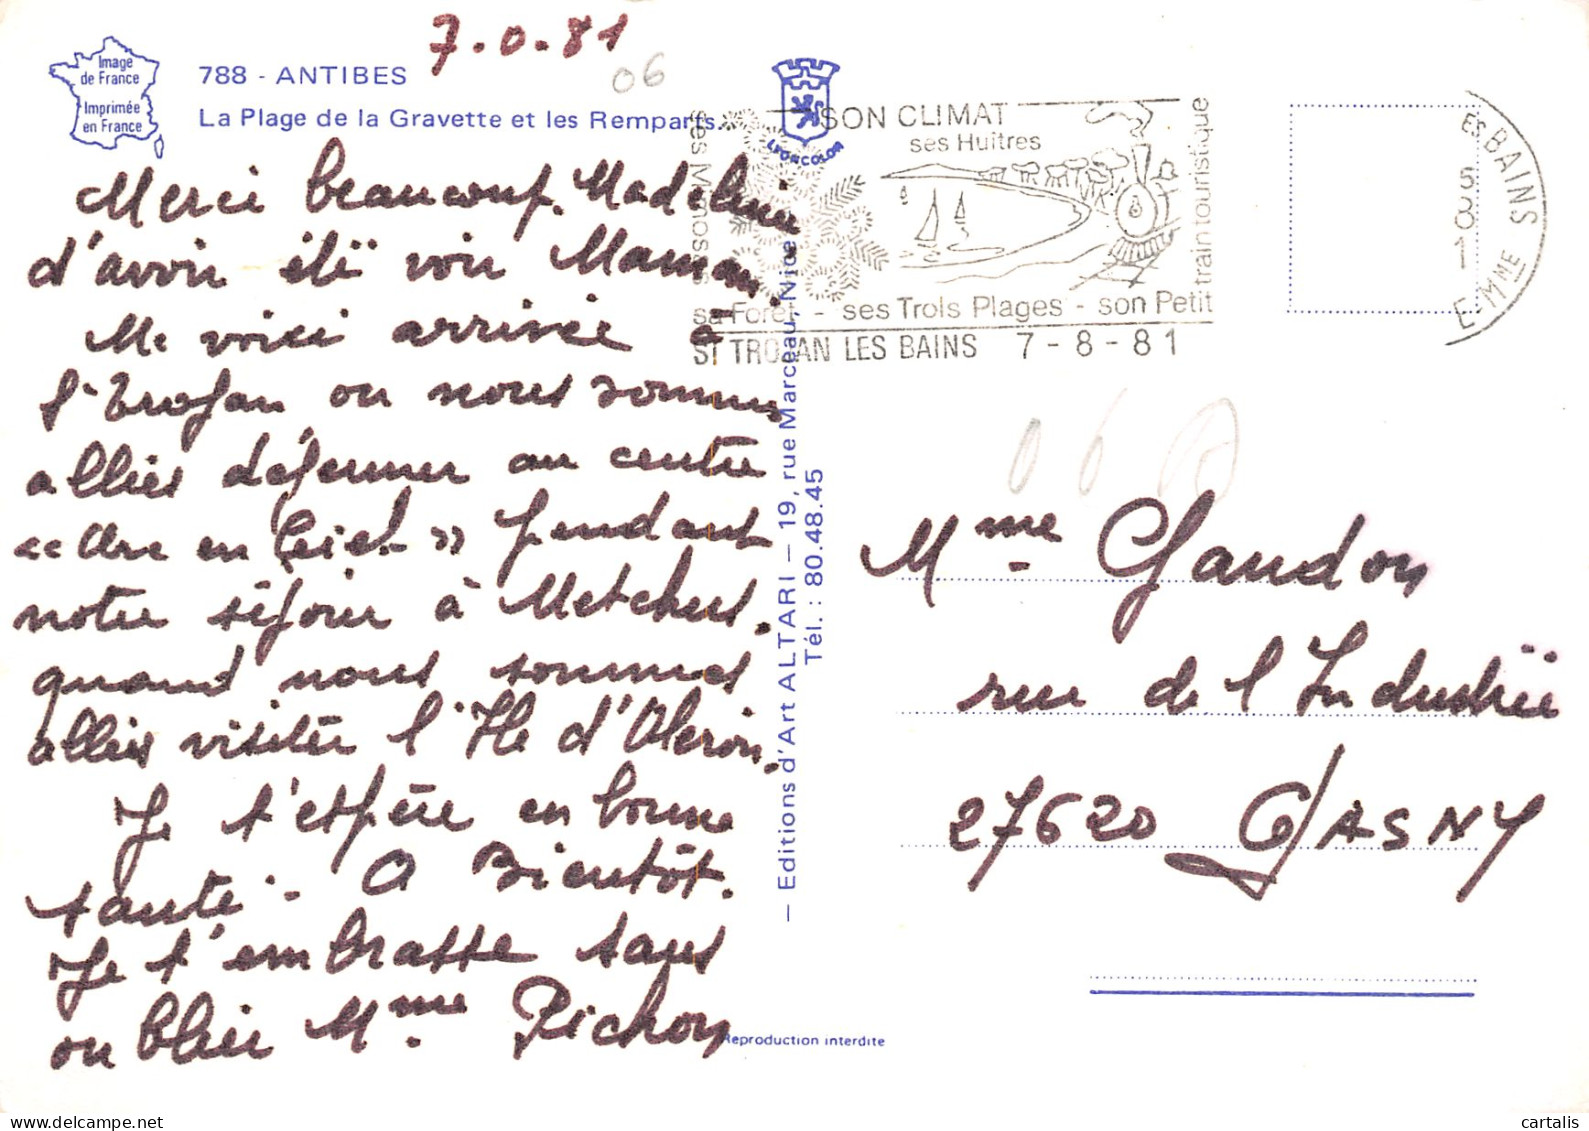 7.0.81
06
Image
de France
Imprimée
en France
788 - ANTIBES
La Plage de la Gravette et les Remparts.
LYONCOLOR
Merci beaucoup. Madeleine
d'avoir été voir Maman.
Me voici arrivée à
St Trojan ou nous sommes
allées déjeuner au centre
<< Arc en Ciel >> pendant
notre séjour à Metchers.
quand nous sommes
allées visiter l'Ile d'Oleron.
Je t'espère en bonne
santé. A Bientôt.
Je t'embrasse sans
oublier Mme Pichon
- Editions d'Art ALTARI - 19, rue Marceau, Nice
Tél. : 80.48.45
Reproduction interdite
ses Mimosas
SON CLIMAT
ses Huitres
train touristique
sa Foret - ses Trois Plages - son Petit
ST TROJAN LES BAINS 7-8-81
ES BAINS
81
E-MME
Mme Gaudon
rue de l'Industrie
27620 GASNY
cartalis